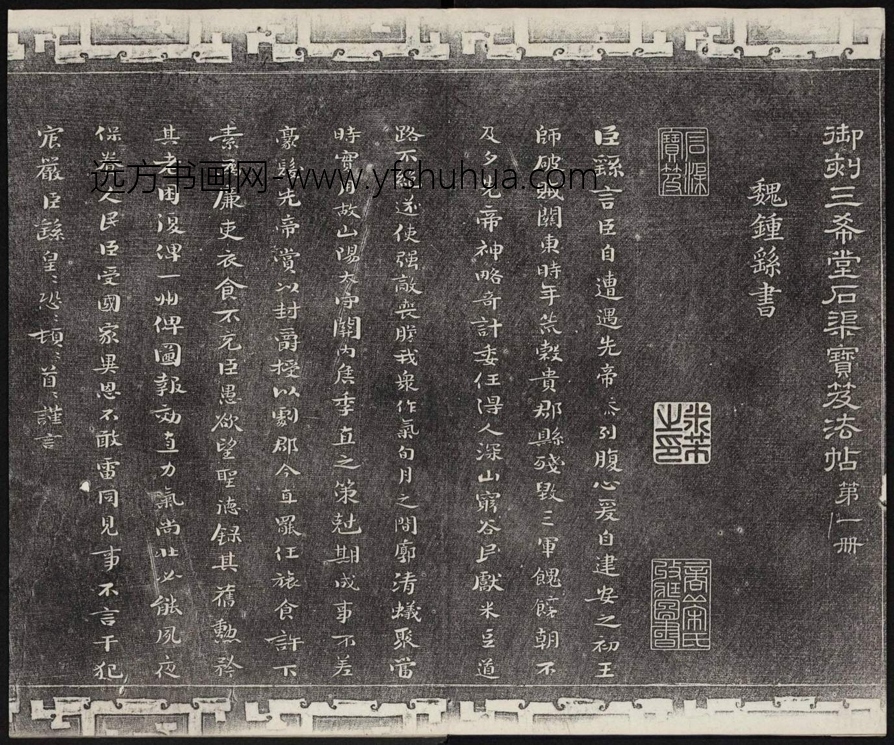 御刻三希堂石渠寶笈法帖第一冊
魏鍾繇書
臣繇言臣自遭遇先帝忝列腹心爰自建安之初王
師破賊關東時年荒穀貴郡縣殘毀三軍餽饟朝不
及夕先帝神略奇計委任得人深山窮谷民獻米豆道
路不絕遂使强敵喪膽我衆作氣旬月之間廓清蟻聚當
時實用故山陽太守關內侯季直之策剋期成事不差
豪髮先帝賞以封爵授以劇郡今直罷任旅食許下
素爲廉吏衣食不充臣愚欲望聖德錄其舊勳矜
其老困復俾一州俾圖報効直力氣尚壯必能夙夜
保養人民臣受國家異恩不敢雷同見事不言干犯
宸嚴臣繇皇〻恐〻頓〻首〻謹言
米芾之印
远方书画网-www.yfshuhua.com